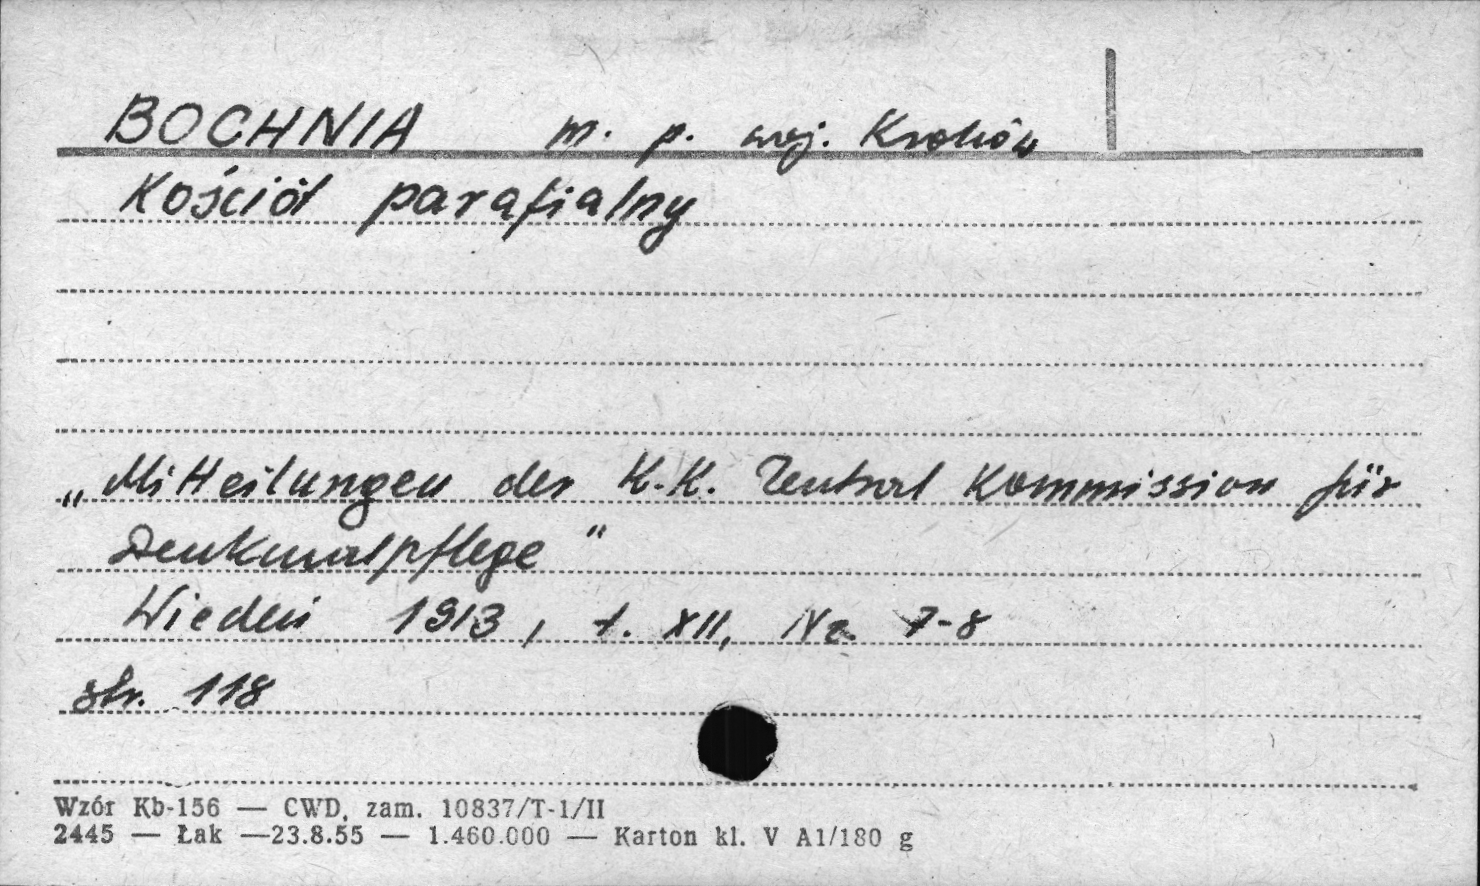 BOCHNIA m. p. woj. Kraków
Kościół parafialny
„Mitteilungen der K.K. Zentral Kommission für
Denkmalpflege"
Wiedeń 1913, t. XII, Nr 7-8
str. 118
Wzór Kb-156 — CWD, zam. 10837/T-1/II
2445 — Łak —23.8.55 — 1.460.000 — Karton kl. V A1/180 g